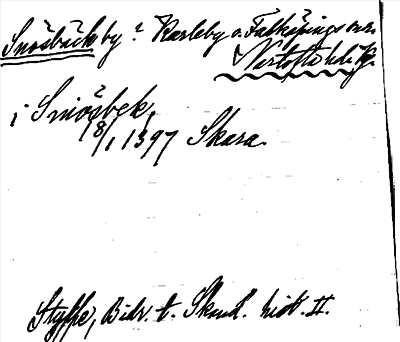 Snösbäck by ? Karleby o. Falköpings snr.
Vartofta hd Vg.
i Snösbek,
18/1 1397 Skara.
Styffe, Bidr. t. Skand. hist. II.